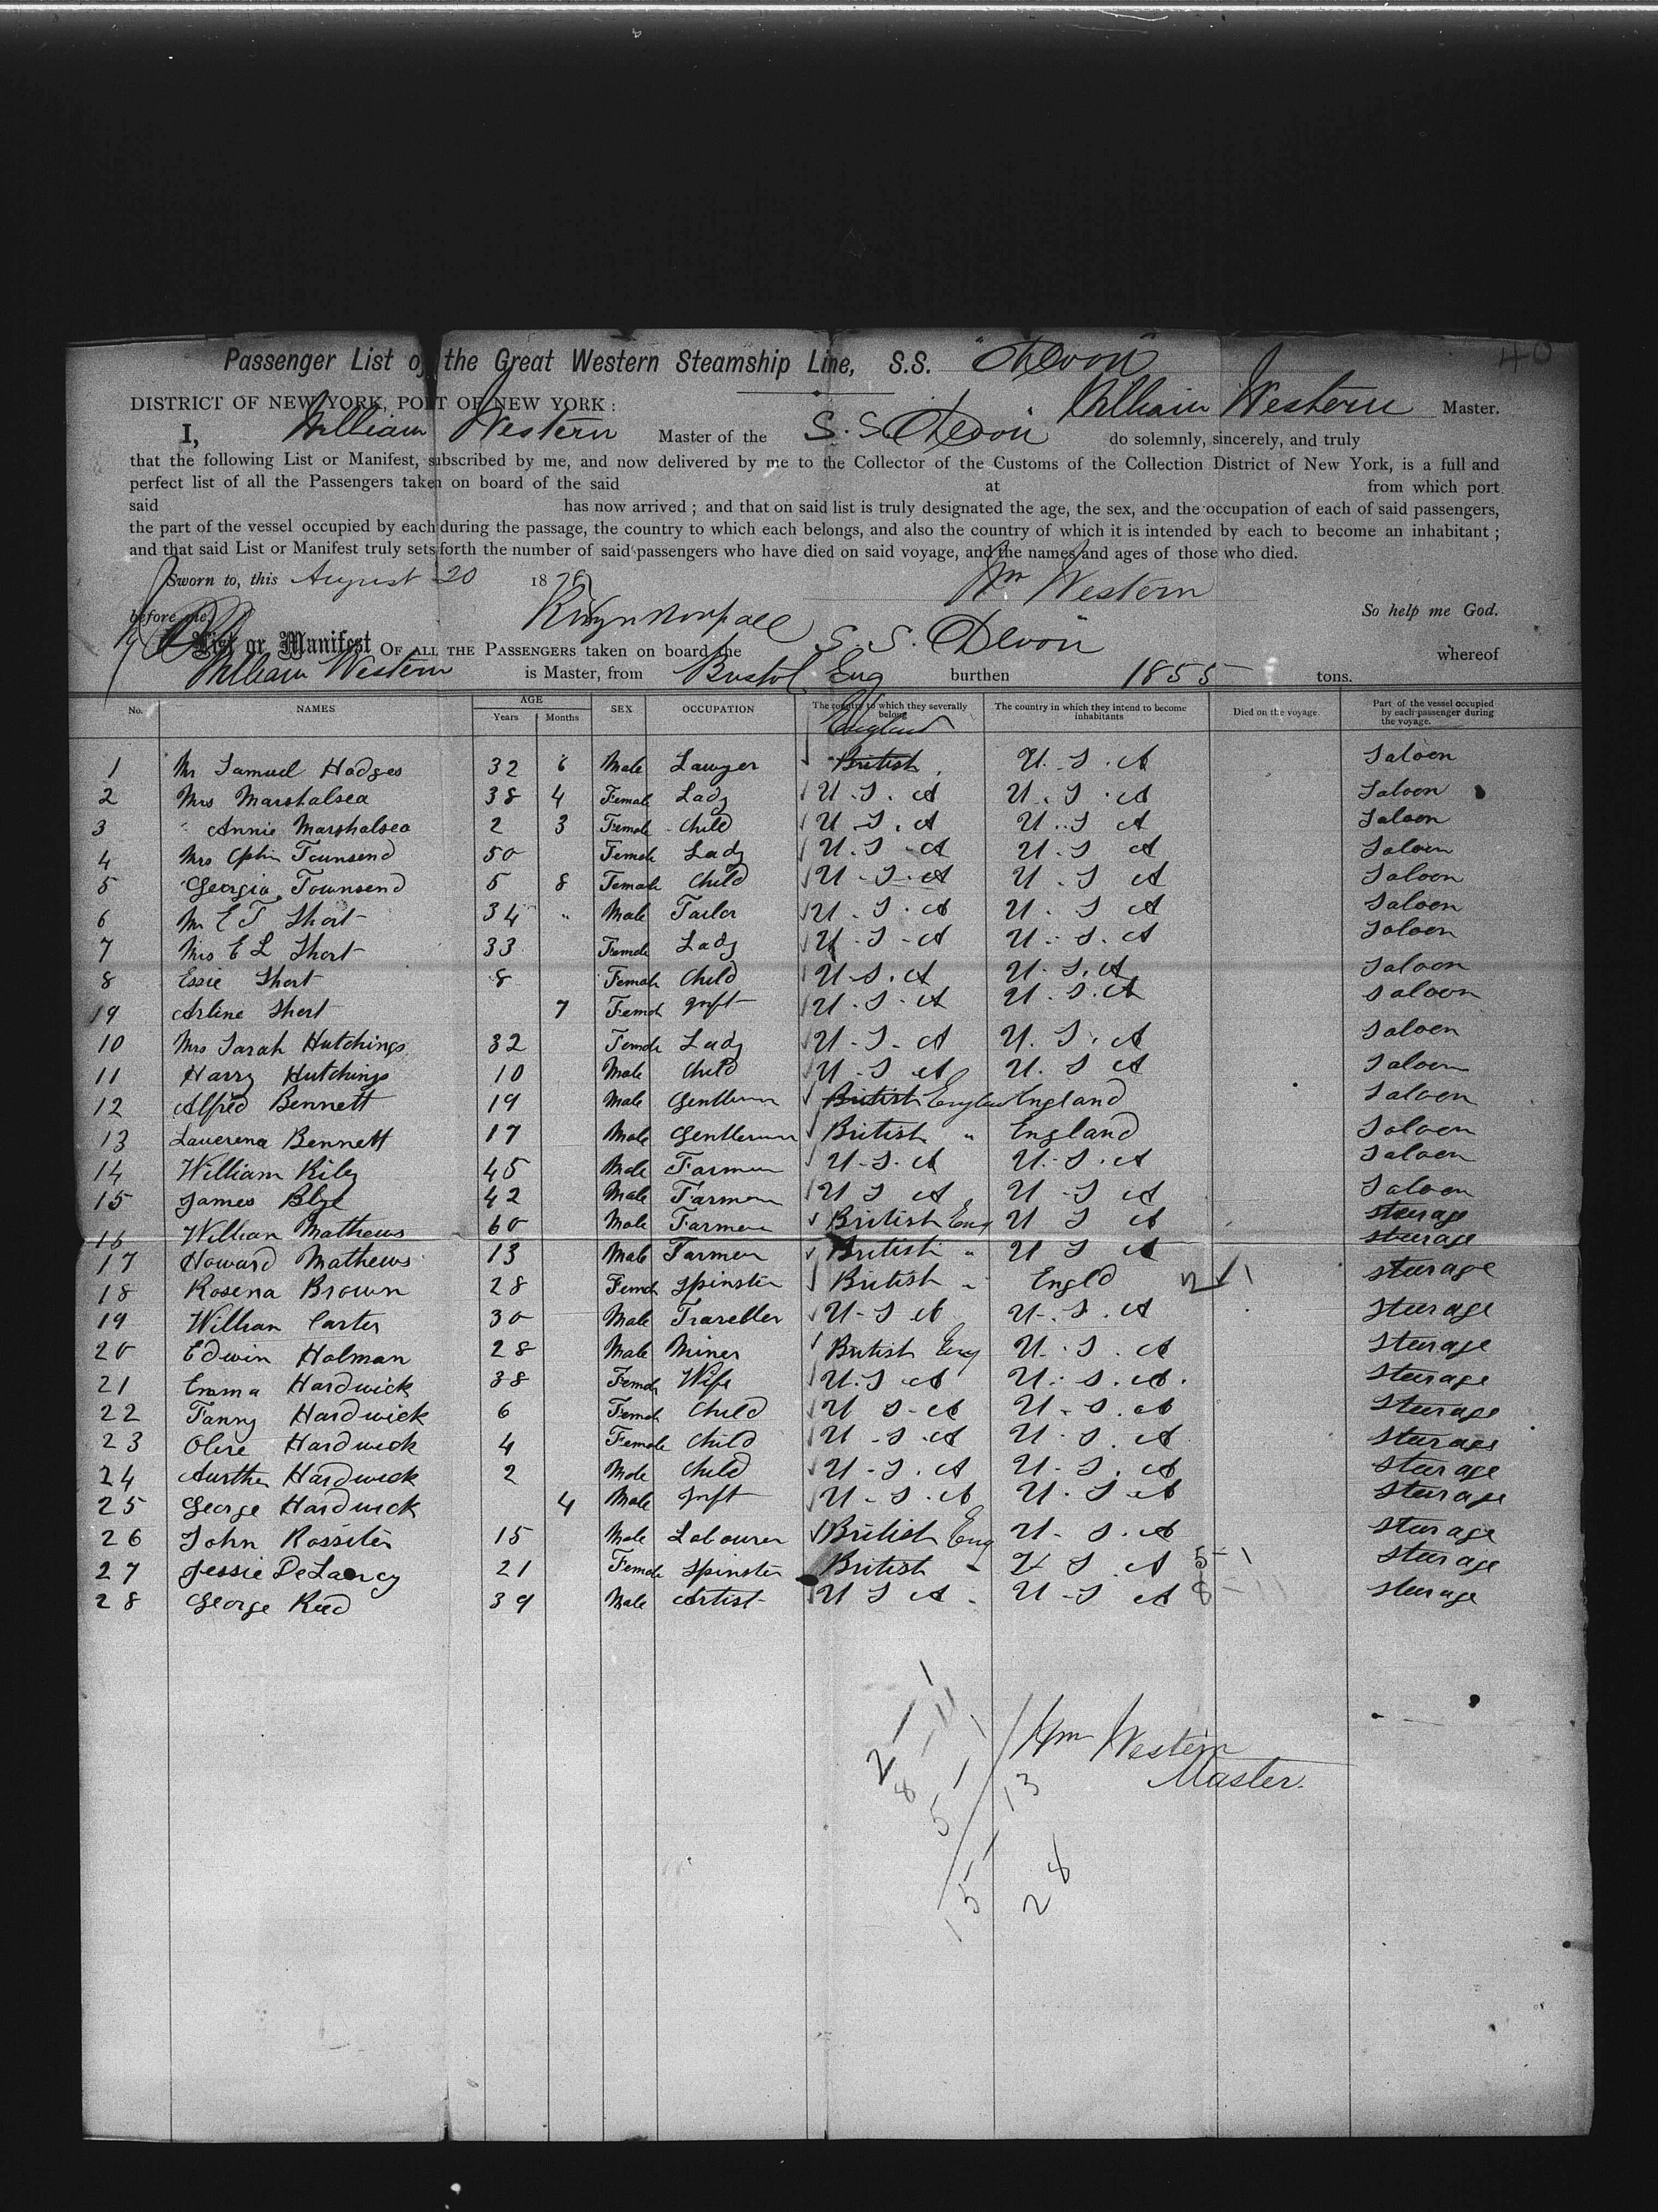 40
Passenger List of the Great Western Steamship Line, S.S. "Devon"
DISTRICT OF NEW YORK, PORT OF NEW YORK: William Western Master.
I, William Western Master of the S.S. Devon do solemnly, sincerely, and truly
that the following List or Manifest, subscribed by me, and now delivered by me to the Collector of the Customs of the Collection District of New York, is a full and
perfect list of all the Passengers taken on board of the said at from which port
said has now arrived; and that on said list is truly designated the age, the sex, and the occupation of each of said passengers,
the part of the vessel occupied by each during the passage, the country to which each belongs, and also the country of which it is intended by each to become an inhabitant;
and that said List or Manifest truly sets forth the number of said passengers who have died on said voyage, and the names and ages of those who died.
Sworn to, this August 20 18 Wm Western
before me So help me God.
List or Manifest OF ALL THE PASSENGERS taken on board the S. S. Devon whereof
William Western is Master, from Bristol Eng burthen 1855 tons.
No. NAMES AGE Years Months SEX OCCUPATION The country to which they severally belong The country in which they intend to become inhabitants Died on the voyage Part of the vessel occupied by each passenger during the voyage.
England
1 Mr Samuel Hodges 32 6 Male Lawyer British U. S. A Saloon
2 Mrs Marshalsea 38 4 Female Lady U. S. A U. S. A Saloon
3 Annie Marshalsea 2 3 Female Child U. S. A U. S A Saloon
4 Mrs Townsend 50 Female Lady U. S. A U. S A Saloon
5 Georgia Townsend 5 8 Female Child U. S. A U. S A Saloon
6 Mr E T Short 34 " Male Tailor U. S. A U. S A Saloon
7 Mrs E L Short 33 Female Lady U. S. A U. S. A Saloon
8 Essie Short 8 Female Child U. S. A U. S. A Saloon
19 Arline Short 7 Female Inft U. S. A U. S. A Saloon
10 Mrs Sarah Hutchings 32 Female Lady U. S. A U. S. A Saloon
11 Harry Hutchings 10 Male Child U. S A U. S A Saloon
12 Alfred Bennett 19 Male Gentleman British England Saloon
13 Laverena Bennett 17 Male Gentleman British " England Saloon
14 William Kiley 45 Male Farmer U. S. A U. S. A Saloon
15 James Blye 42 Male Farmer U S A U. S A Saloon
16 William Mathews 60 Male Farmer British Eng U S A Steerage
steerage
17 Howard Mathews 13 Male Farmer British " U S A steerage
18 Rosena Brown 28 Female Spinster British " Engld 2 1 steerage
19 William Carter 30 Male Traveller U. S A U. S. A Steerage
20 Edwin Holman 28 Male Miner British Eng U. S. A Steerage
21 Emma Hardwick 38 Female Wife U. S A U. S. A. Steerage
22 Fanny Hardwick 6 Female Child U S. A U. S. A Steerage
23 Olive Hardwick 4 Female Child U. S. A U. S. A Steerage
24 Aurther Hardwick 2 Male Child U. S. A U. S. A Steerage
25 George Hardwick 4 Male Inft U. S. A U. S. A Steerage
26 John Rossiter 15 Male Labourer British Eng U. S. A Steerage
27 Jessie DeLancy 21 Female Spinster British " U S. A 5-1 Steerage
28 George Reed 39 Male Artist U S A U. S A 8 - 11 Steerage
2 - 1
8 - 11
5 - 1
15 - 13
28
Wm Western
Master.